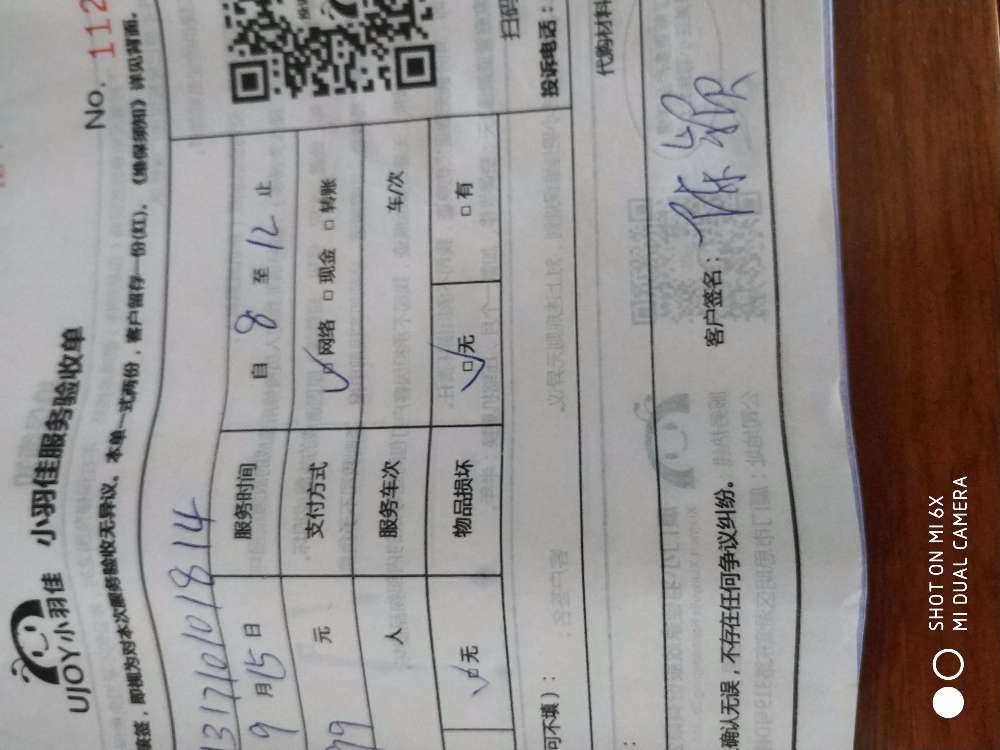 No. 112
UJOY小羽佳 小羽佳服务验收单
签，即视为对本次服务验收无异议。本单一式两份，客户留存一份(红)。《维保须知》详见背面。
1317101018814
9月15日 服务时间 自 8 至 12 止
99 元 支付方式 ☑网络 □现金 □转账
人 服务车次 车/次
☑无 物品损坏 ☑无 □有
扫码
投诉电话：
可不填）：
代购材料
确认无误，不存在任何争议纠纷。 客户签名：陈颖
SHOT ON MI 6X
MI DUAL CAMERA